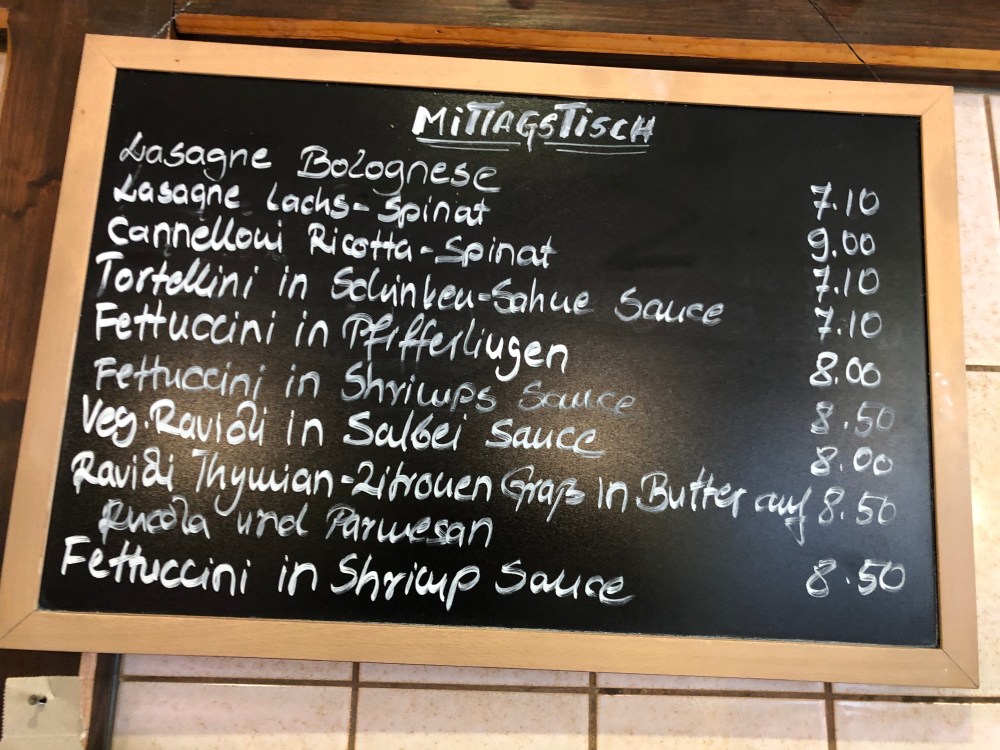 MITTAGSTISCH
Lasagne Bolognese 7.10
Lasagne Lachs-Spinat 9.00
Cannelloni Ricotta-Spinat 7.10
Tortellini in Schinken-Sahne Sauce 7.10
Fettuccini in Pfifferlingen 8.00
Fettuccini in Shrimps Sauce 8.50
Veg. Ravioli in Salbei Sauce 8.00
Ravioli Thymian-Zitronen Graß in Butter auf 8.50
Rucola und Parmesan
Fettuccini in Shrimp Sauce 8.50